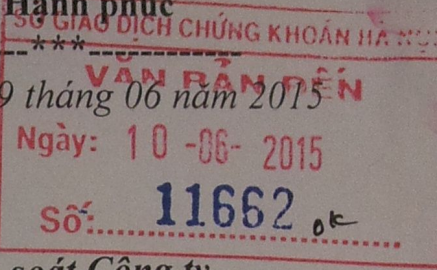 Hạnh phúc
SỞ GIAO DỊCH CHỨNG KHOÁN HÀ NỘI
***
VĂN BẢN ĐẾN
9 tháng 06 năm 2015
Ngày: 10 -06- 2015
Số: 11662 ok
soát Công ty